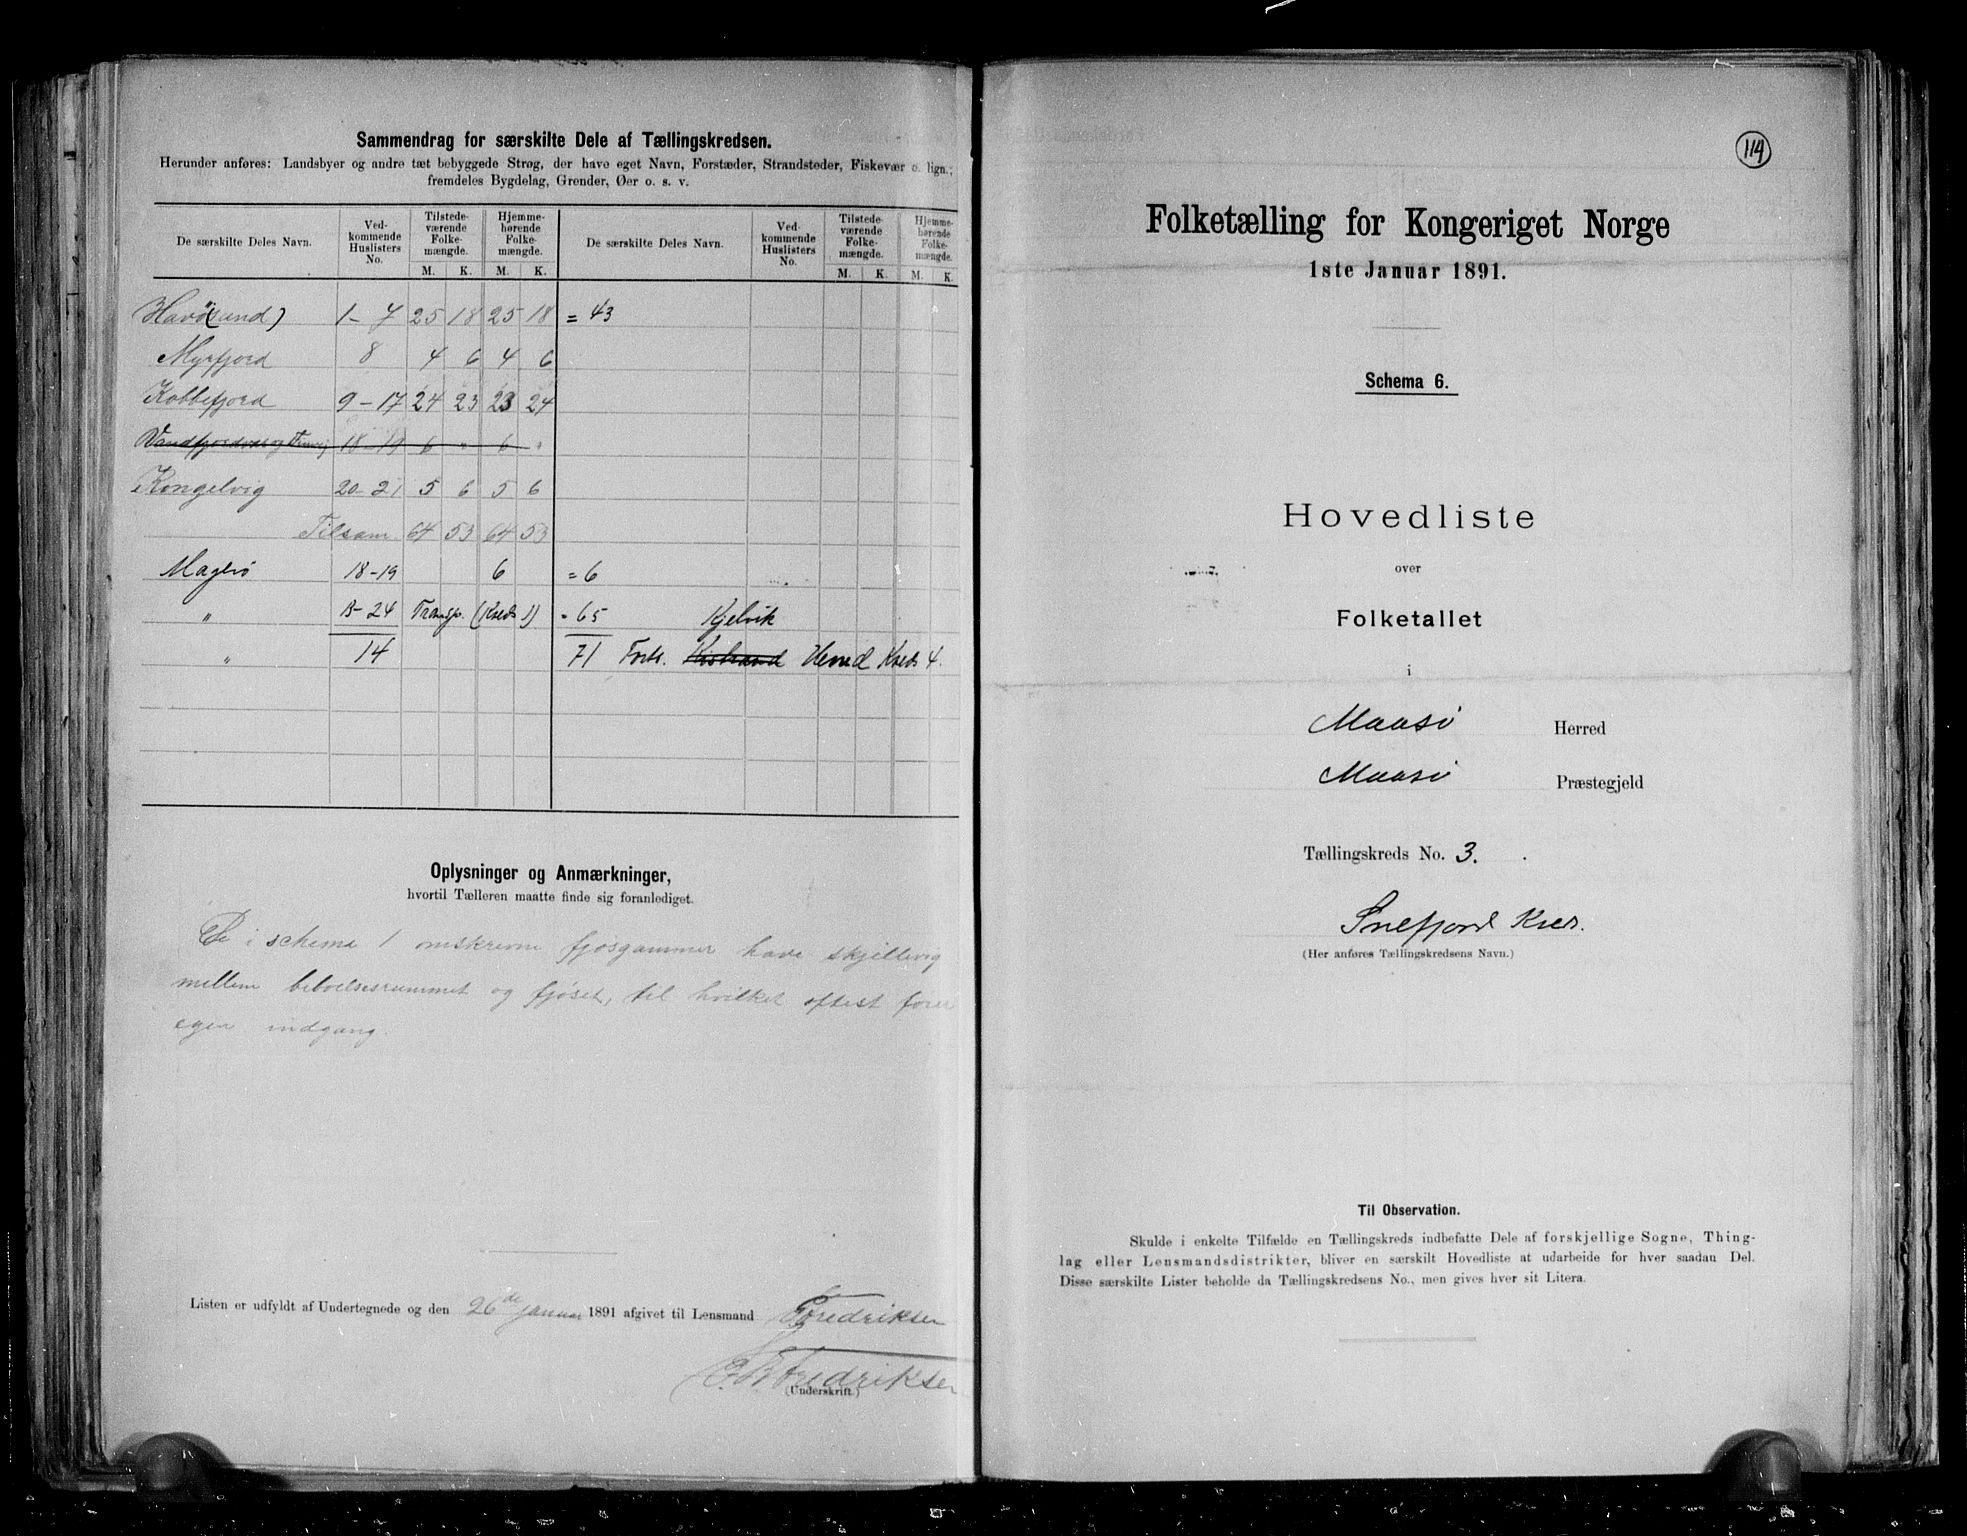 Sammendrag for særskilte Dele af Tællingskredsen.
Herunder anføres: Landsbyer og andre tæt bebyggede Strøg, der have eget Navn, Forstæder, Strandsteder, Fiskevær o. lign.,
fremdeles Bygdelag, Grender, Øer o. s. v.
De særskilte Deles Navn. Vedkommende Huslisters No. Tilstedeværende Folkemængde. Hjemmehørende Folkemængde. De særskilte Deles Navn. Vedkommende Huslisters No. Tilstedeværende Folkemængde. Hjemmehørende Folkemængde.
M. K. M. K. M. K. M. K.
Havö(sund) 1-7 25 18 25 18 = 43
Myrfjord 8 4 6 4 6
Kobbefjord 9-17 24 23 23 24
18-19 6 " 6 "
Kongelvig 20-21 5 6 5 6
Tilsam. 64 53 64 53
Magerö 18-19 6 = 6
" 13-24 Transp. (Kreds 1) = 65 Kjelvik
" 14 71 Forts. Kistrand Herred Kreds 4.
Oplysninger og Anmærkninger,
hvortil Tælleren maatte finde sig foranlediget.
De i schema 1 omskrevne fjösgammer have skjillevig
mellem beboelsesrummet og fjöset, til hvilket oftest forer
egen indgang.
Listen er udfyldt af Undertegnede og den 26de januar 1891 afgivet til Lensmand Fredriksen
Fredriksen
(Underskrift.)
114
Folketælling for Kongeriget Norge
1ste Januar 1891.
Schema 6.
Hovedliste
over
Folketallet
i
Maasö Herred
Maasö Præstegjeld
Tællingskreds No. 3.
Snefjord Kreds.
(Her anføres Tællingskredsens Navn.)
Til Observation.
Skulde i enkelte Tilfælde en Tællingskreds indbefatte Dele af forskjellige Sogne, Thing-
lag eller Lensmandsdistrikter, bliver en særskilt Hovedliste at udarbeide for hver saadan Del.
Disse særskilte Lister beholde da Tællingskredsens No., men gives hver sit Litera.